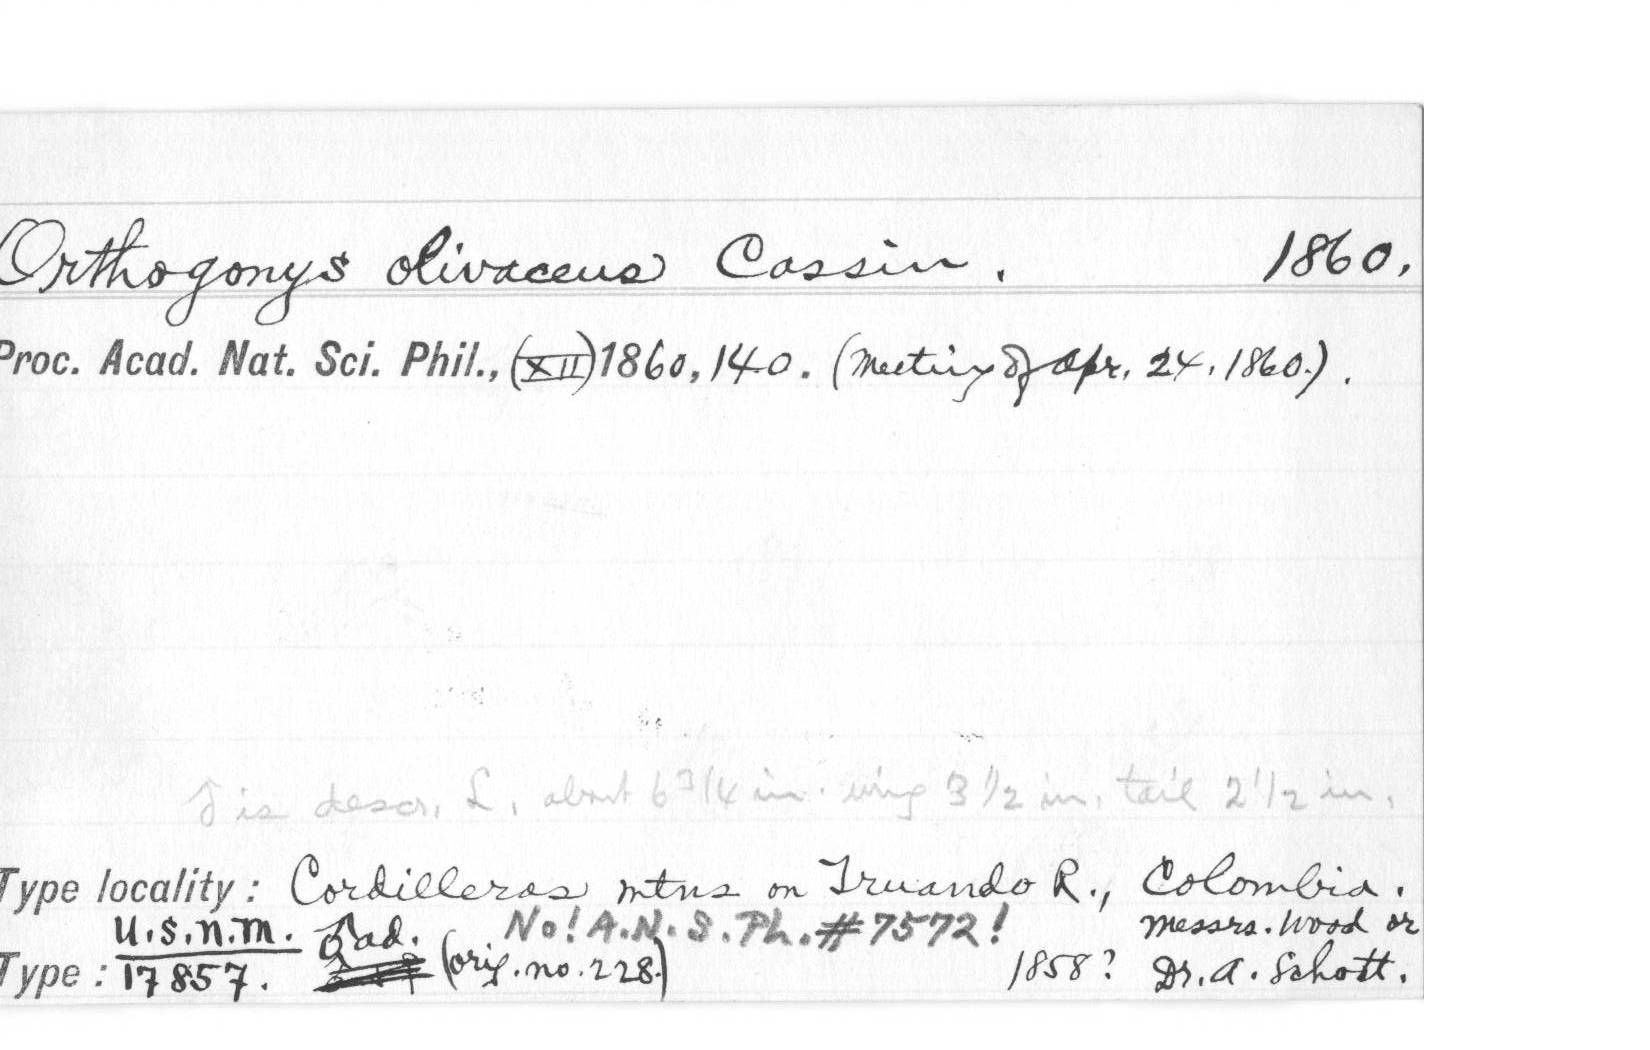 Orthogonys olivaceus Cassin. 1860.
Proc. Acad. Nat. Sci. Phil., (XII) 1860, 140. (Meeting of Apr. 24, 1860.).
♂ is descr. L. about 6 3/4 in. wing 3 1/2 in. tail 2 1/2 in.
Type locality: Cordilleras mtns on Truando R., Colombia.
U.S.N.M. ad. No! A.N.S.Ph. #7572! Messrs. Wood or
Type: 17857. (orig. no. 228.) 1858? Dr. A. Schott.